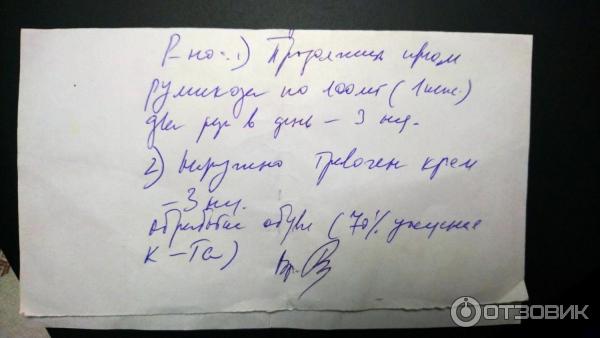 Р-но: 1) Продолжит прием
румикоза по 100мг (1 капс.)
два раза в день – 3 нед.
2) Наружно Травоген крем
– 3 нед.
обработка обуви (70% уксусная
к-та)
Вр.
ОТЗОВИК